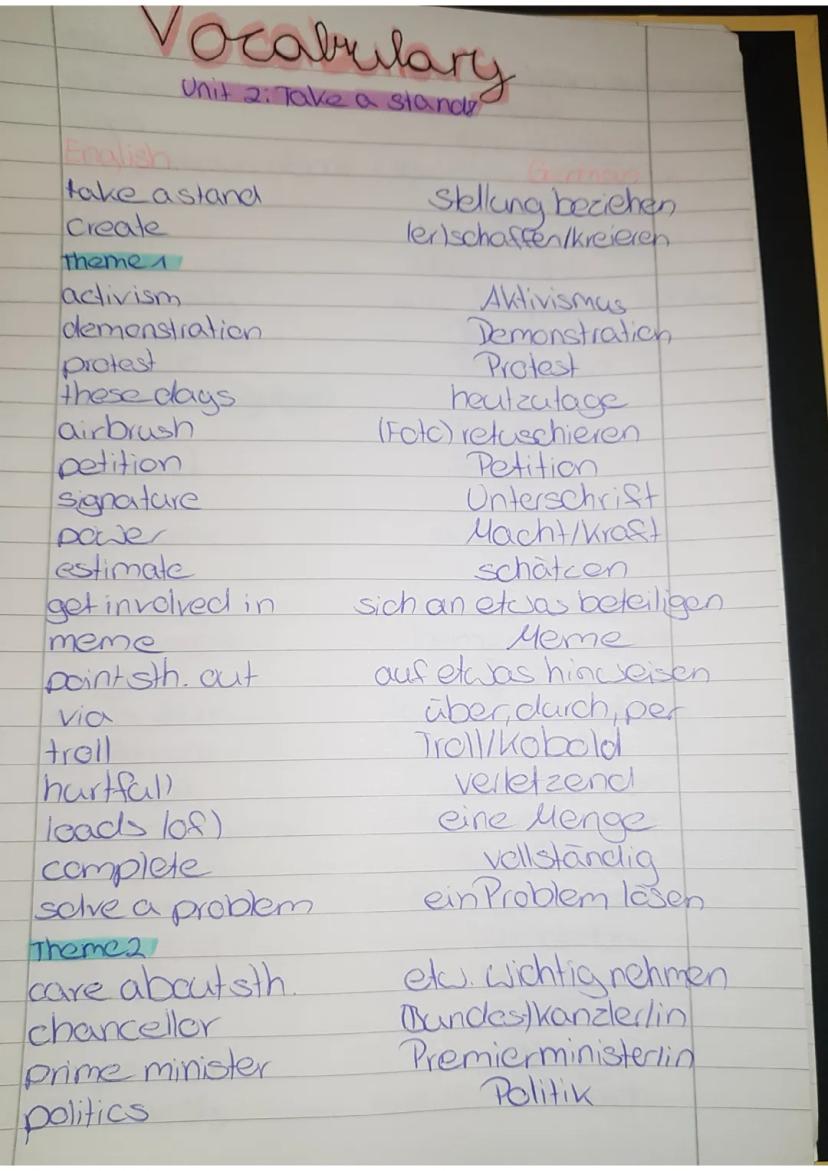 Vocabulary
Unit 2: Take a stand
English German
take a stand Stellung beziehen
create (er)schaffen/kreieren
Theme 1
activism Aktivismus
demonstration Demonstration
protest Protest
these days heutzutage
airbrush (Foto) retuschieren
petition Petition
signature Unterschrift
power Macht/Kraft
estimate schätzen
get involved in sich an etwas beteiligen
meme Meme
point sth. out auf etwas hinweisen
via über, durch, per
troll Troll/Kobold
hurtful) verletzend
loads (of) eine Menge
complete vollständig
solve a problem ein Problem lösen
Theme 2
care about sth. etw. wichtig nehmen
chancellor (Bundes)kanzler/in
prime minister Premierminister/in
politics Politik